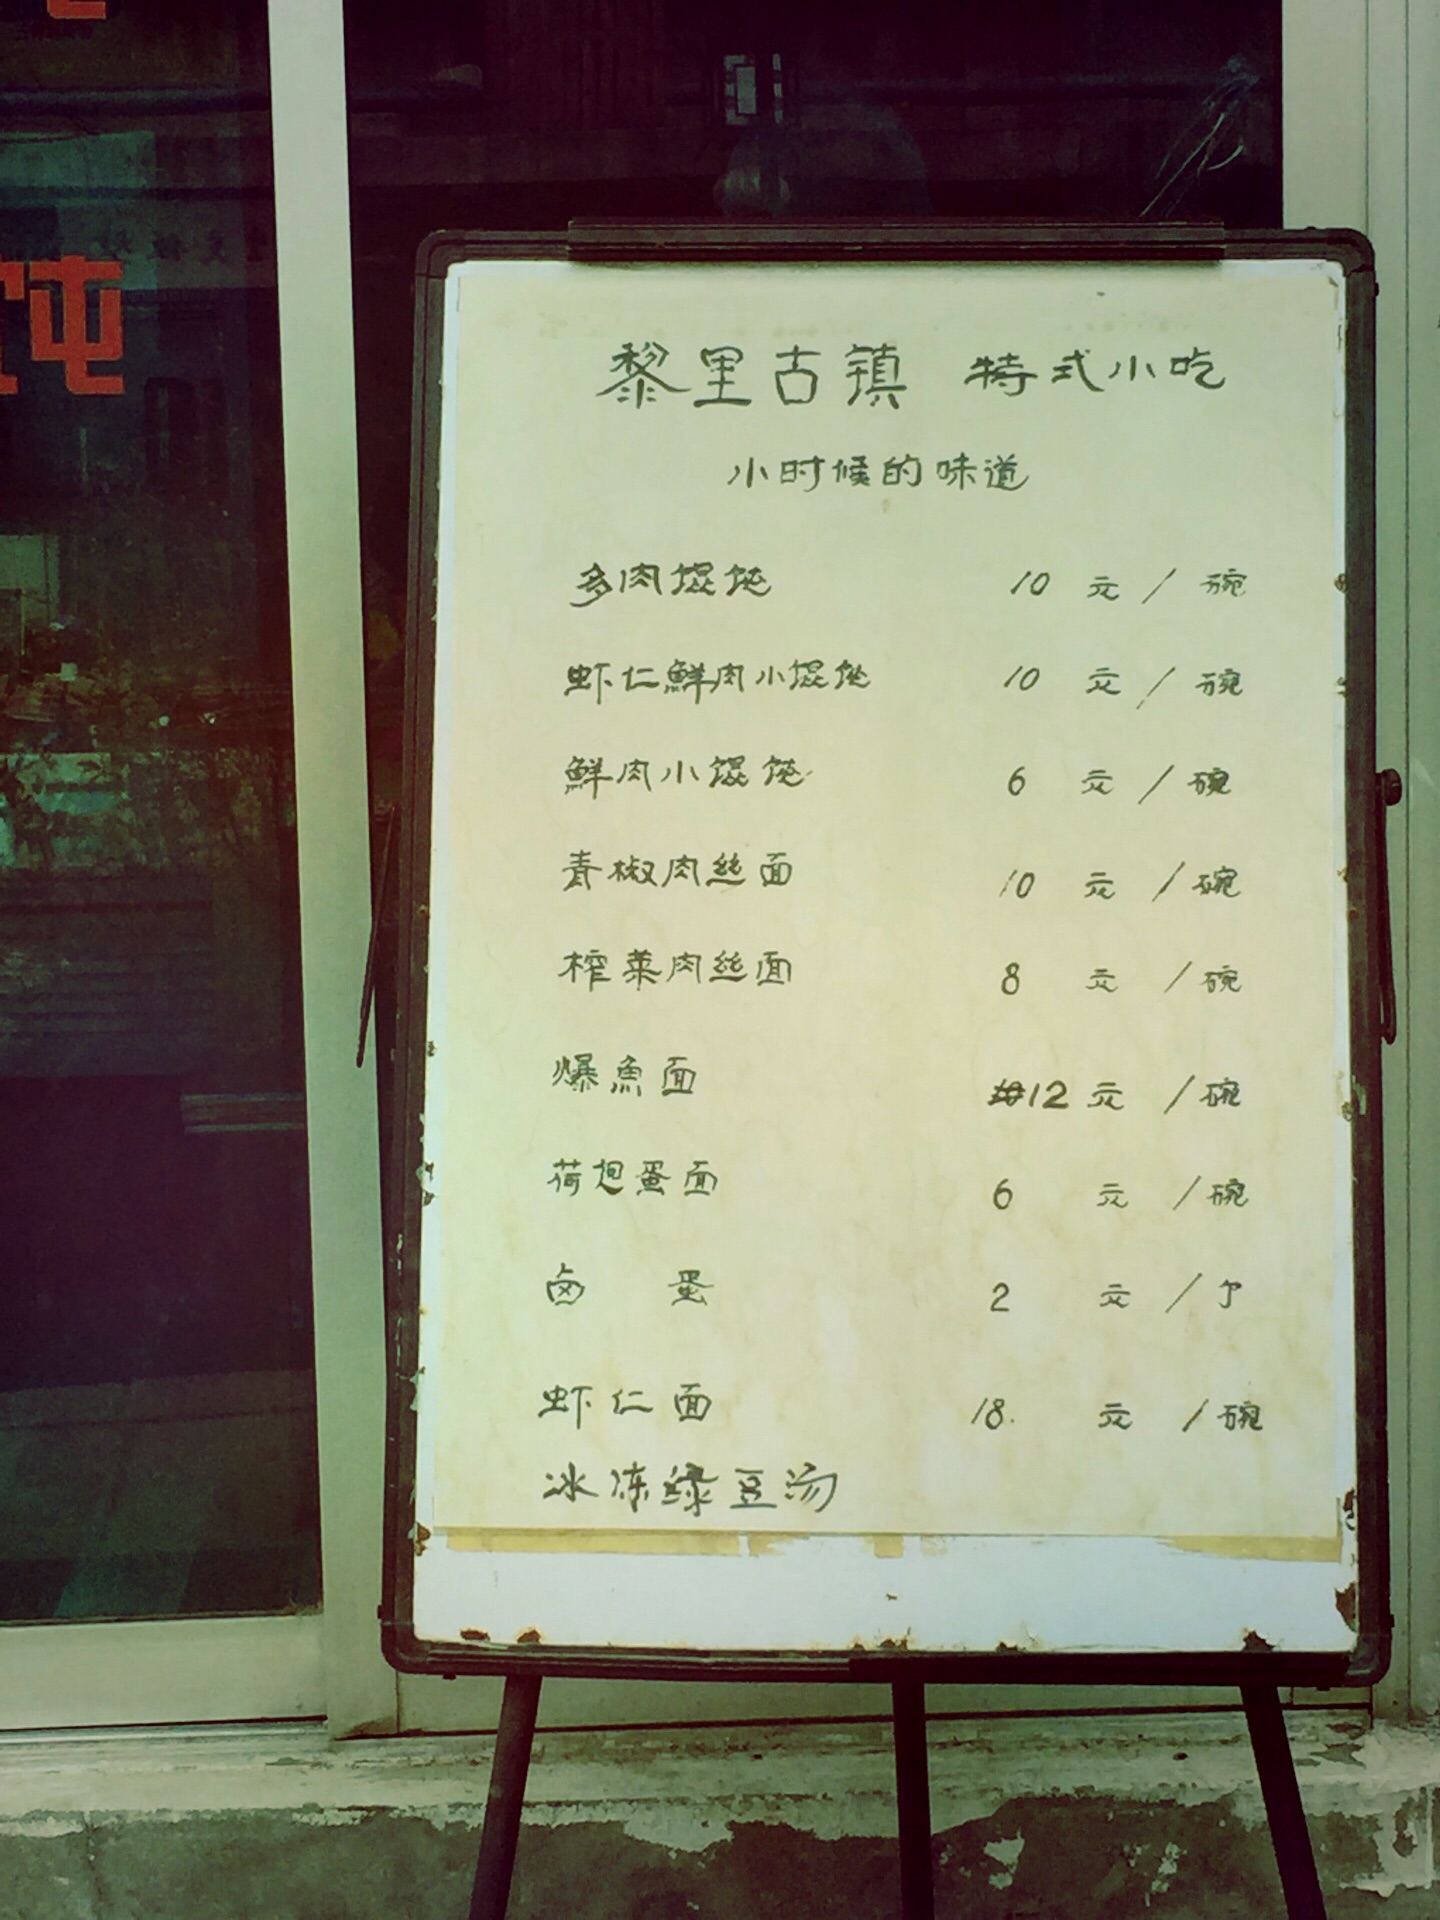 饨
黎里古镇 特式小吃
小时候的味道
多肉馄饨 10 元/碗
虾仁鮮肉小馄饨 10 元/碗
鮮肉小馄饨 6 元/碗
青椒肉丝面 10 元/碗
榨菜肉丝面 8 元/碗
爆魚面 12 元/碗
荷包蛋面 6 元/碗
卤 蛋 2 元/个
虾仁面 18. 元/碗
冰冻绿豆汤